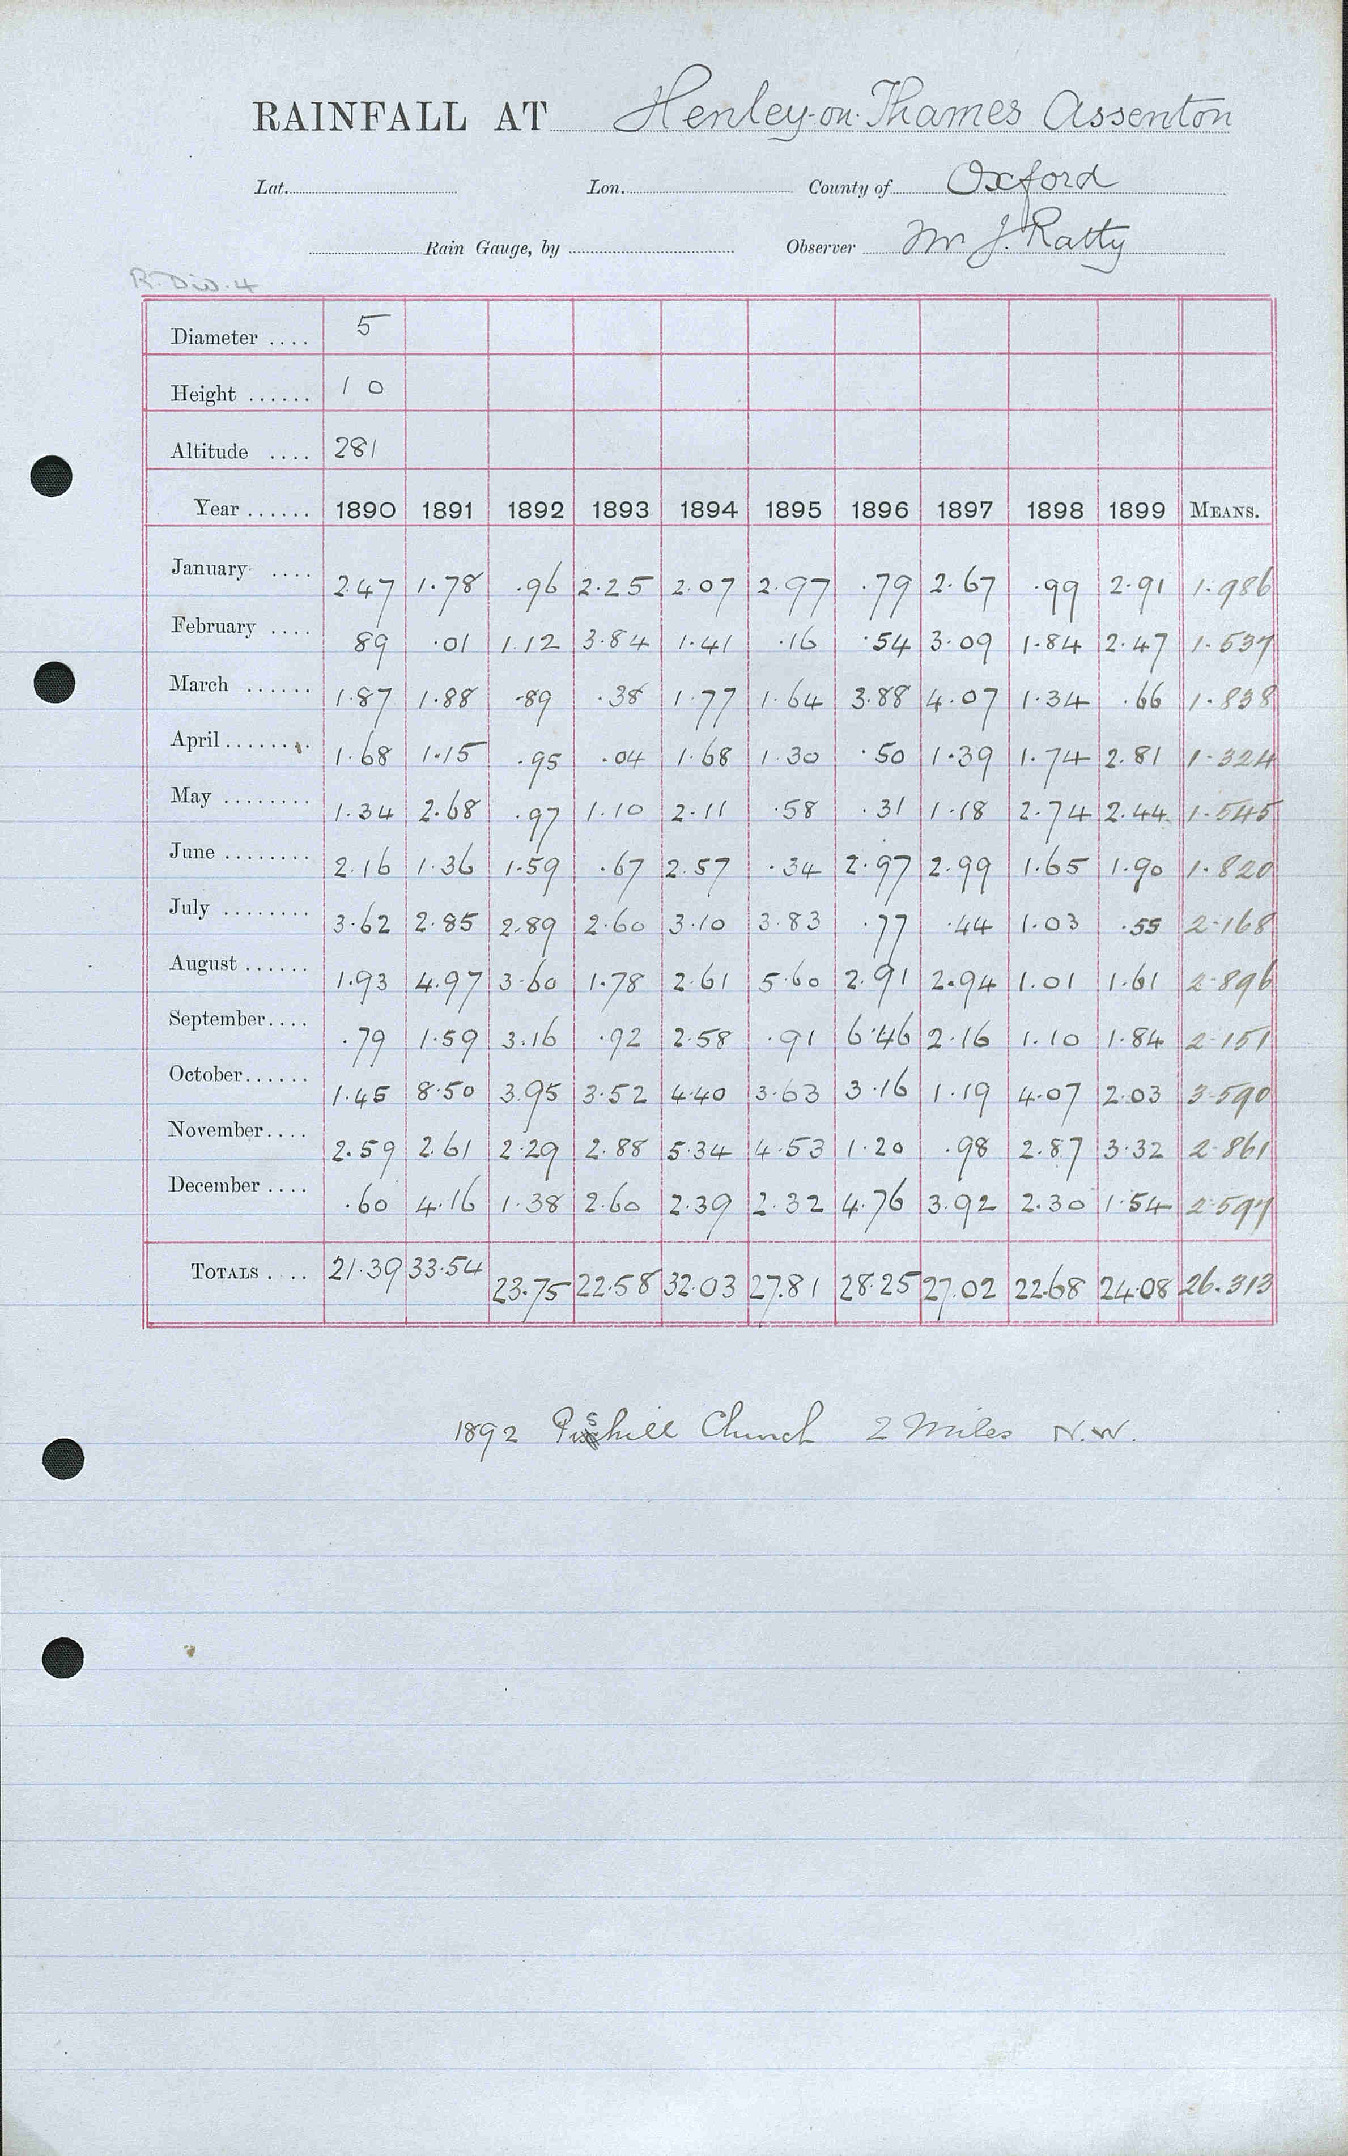 RAINFALL AT Henley-on-Thames Assenton
Lat. Lon. County of Oxford
Rain Gauge, by Observer Mr J. Ratty
R. Div. 4
Diameter .... 5
Height ...... 1 0
Altitude .... 281
Year ...... 1890 1891 1892 1893 1894 1895 1896 1897 1898 1899 MEANS.
January .... 2.47 1.78 .96 2.25 2.07 2.97 .79 2.67 .99 2.91 1.986
February .... 89 .01 1.12 3.84 1.41 .16 .54 3.09 1.84 2.47 1.537
March ...... 1.87 1.88 .89 .38 1.77 1.64 3.88 4.07 1.34 .66 1.838
April ........ 1.68 1.15 .95 .04 1.68 1.30 .50 1.39 1.74 2.81 1.324
May ........ 1.34 2.68 .97 1.10 2.11 .58 .31 1.18 2.74 2.44 1.545
June ........ 2.16 1.36 1.59 .67 2.57 .34 2.97 2.99 1.65 1.90 1.820
July ........ 3.62 2.85 2.89 2.60 3.10 3.83 .77 .44 1.03 .55 2.168
August ...... 1.93 4.97 3.60 1.78 2.61 5.60 2.91 2.94 1.01 1.61 2.896
September .... .79 1.59 3.16 .92 2.58 .91 6.46 2.16 1.10 1.84 2.151
October ...... 1.45 8.50 3.95 3.52 4.40 3.63 3.16 1.19 4.07 2.03 3.590
November .... 2.59 2.61 2.29 2.88 5.34 4.53 1.20 .98 2.87 3.32 2.861
December .... .60 4.16 1.38 2.60 2.39 2.32 4.76 3.92 2.30 1.54 2.597
TOTALS .... 21.39 33.54 23.75 22.58 32.03 27.81 28.25 27.02 22.68 24.08 26.313
1892 Pishill Church 2 Miles N.W.